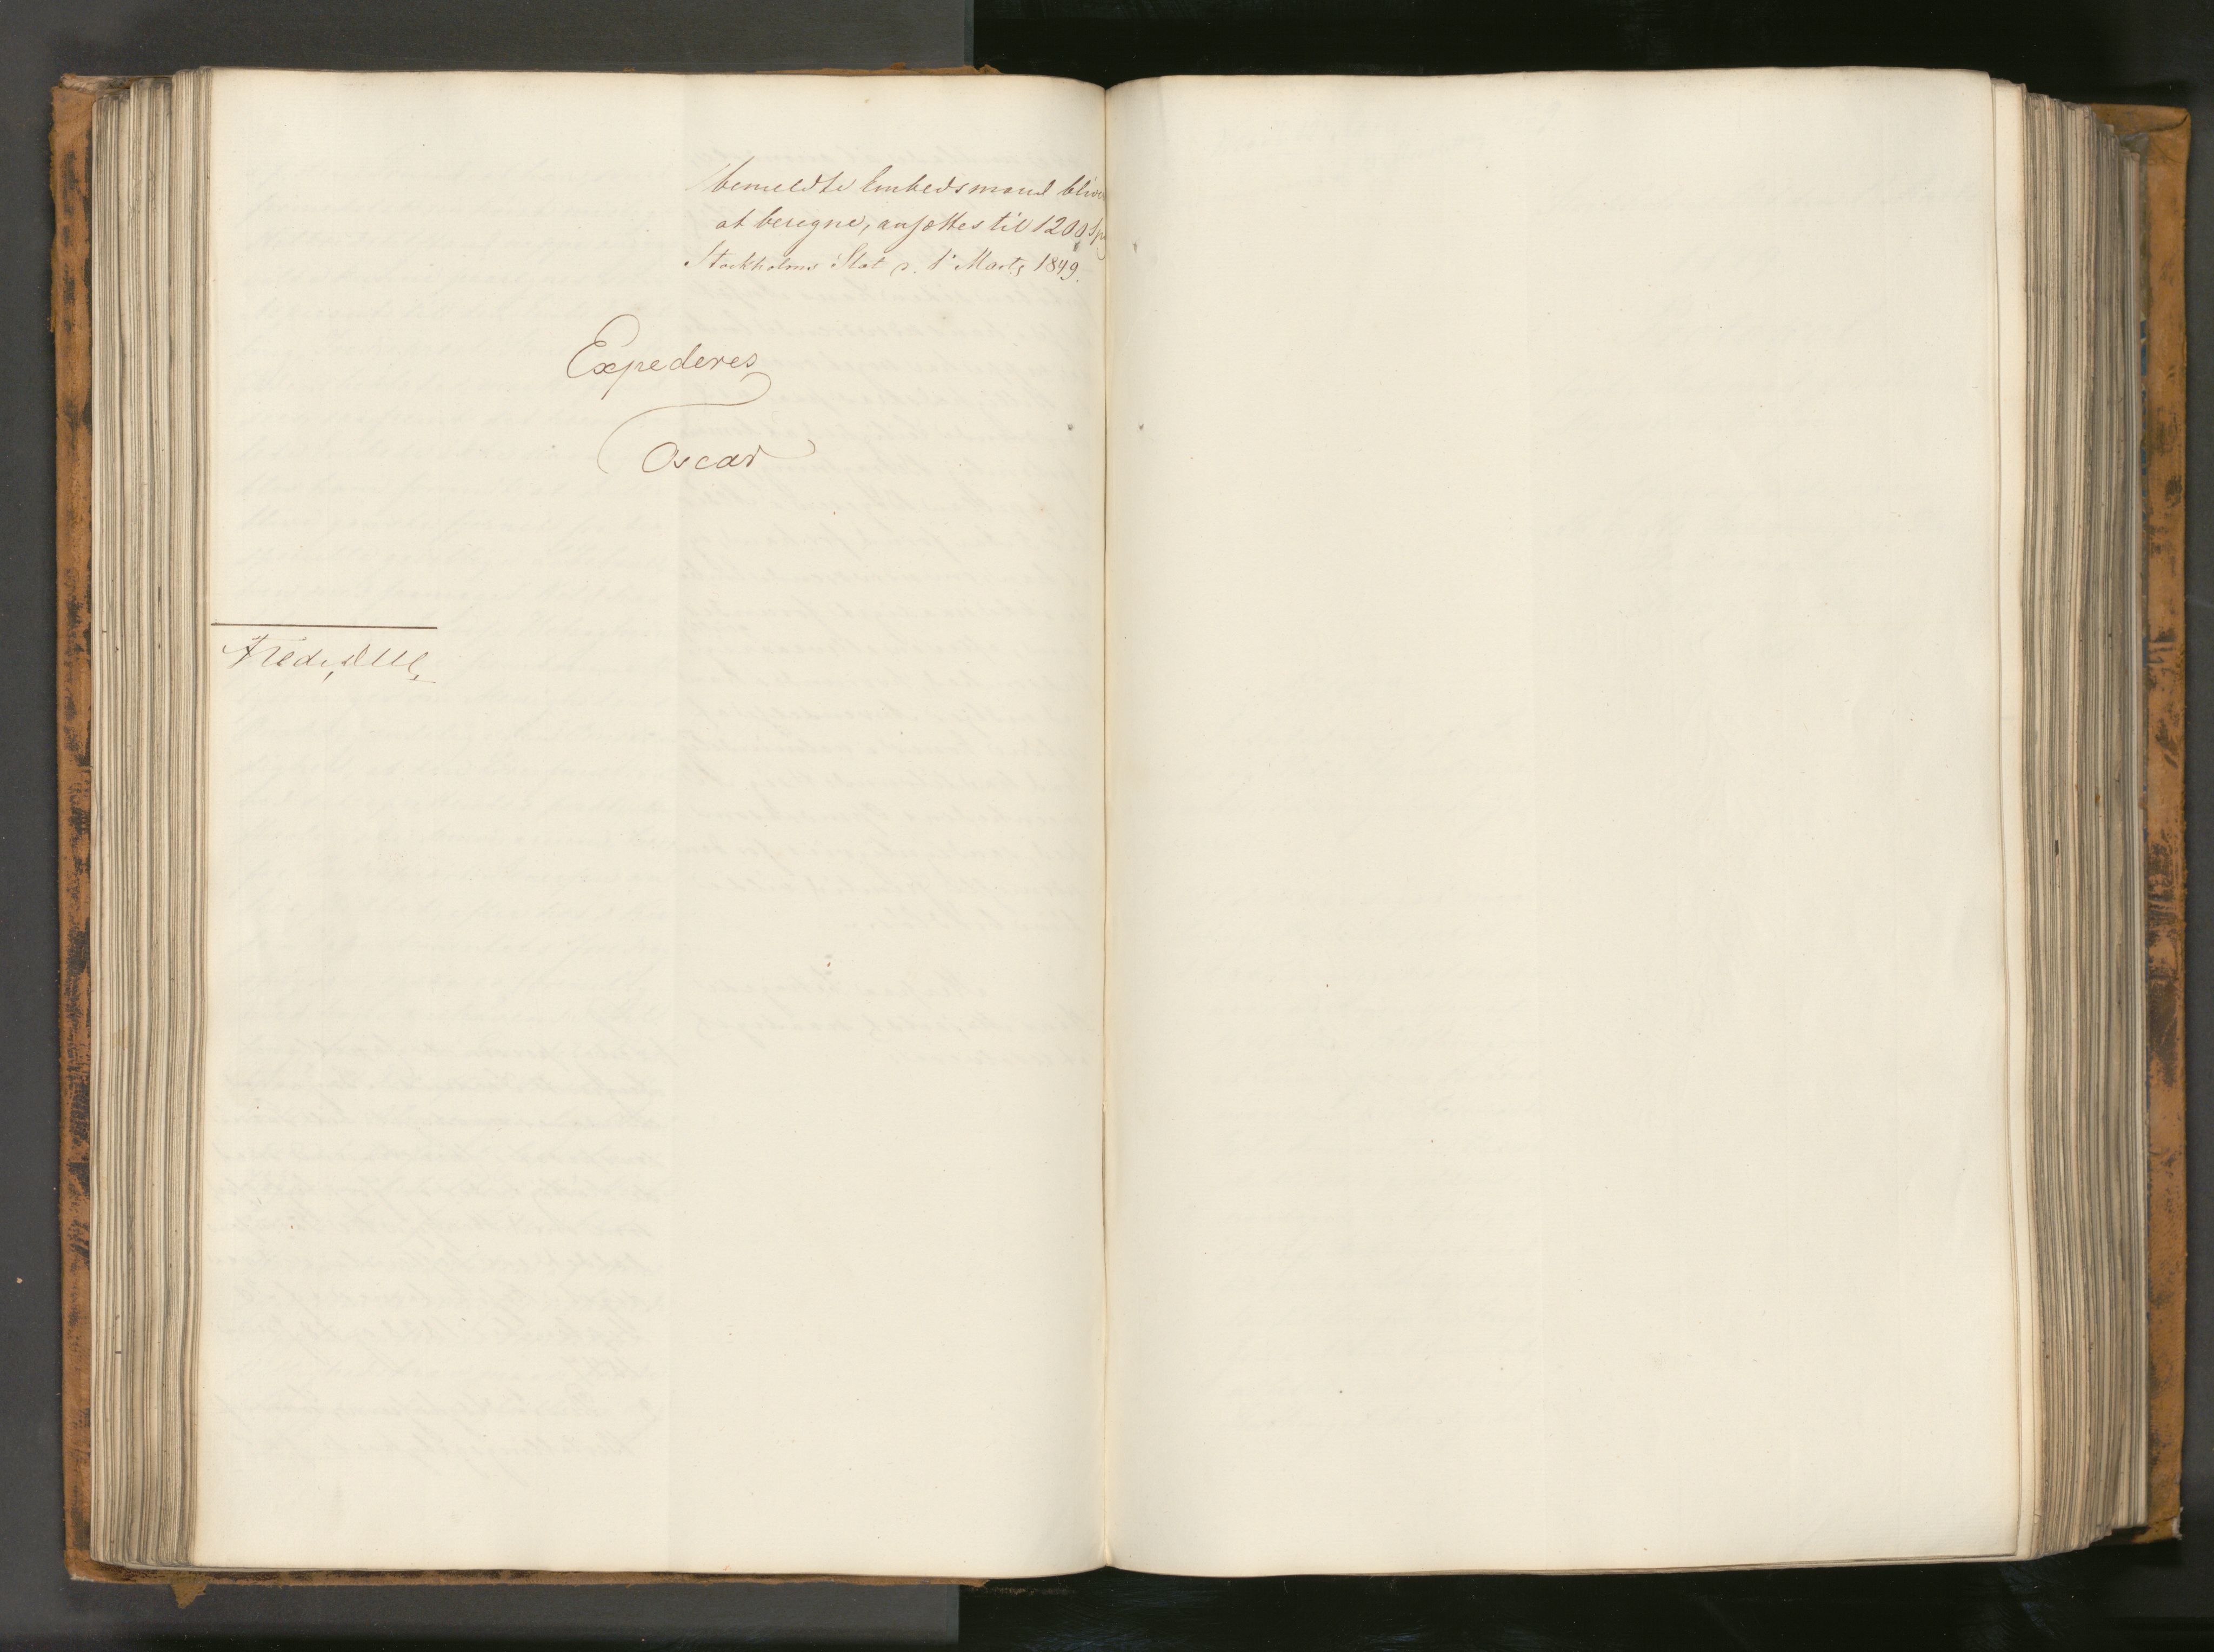 bemeldte Embedsmand bliver
at beregne, ansættes til 1200 Spd
Stockholms Slot d. 1' Marts 1849.
Expederes
Oscar